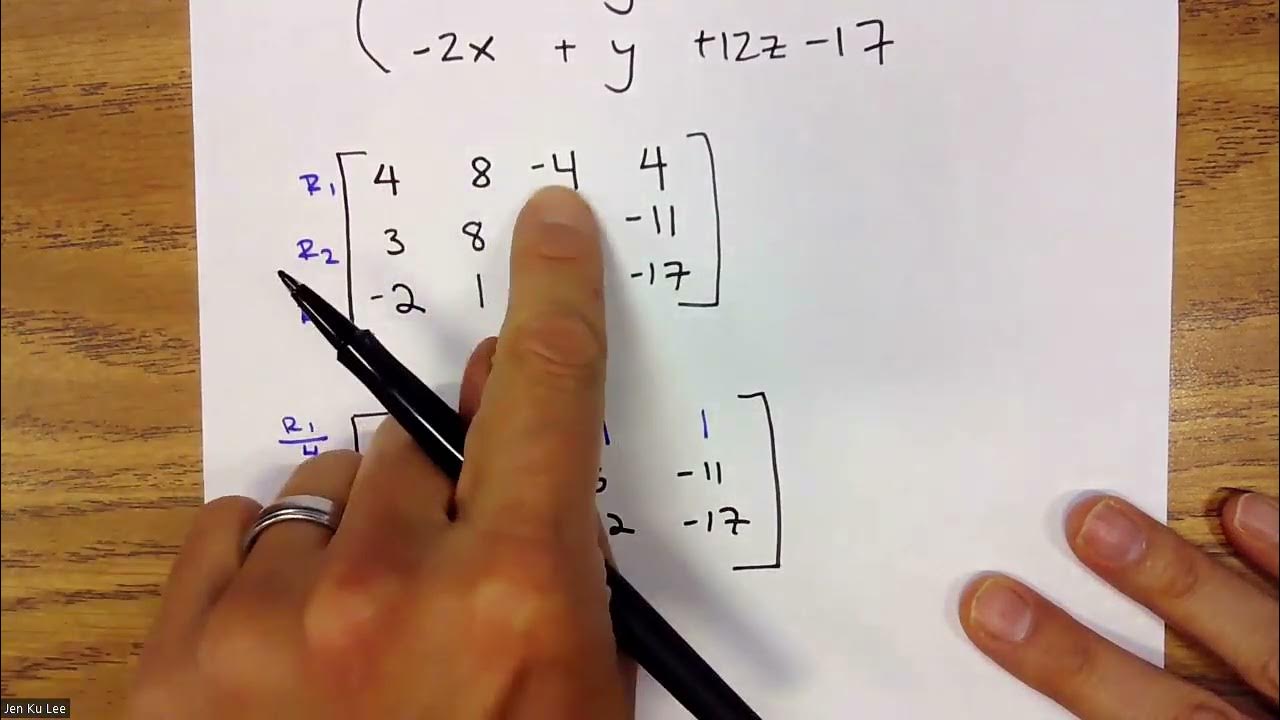 -2x + y +12z -17
R1 4 8 -4 4
R2 3 8 -11
-2 1 -17
R1/4 1
-11
2 -17
Jen Ku Lee